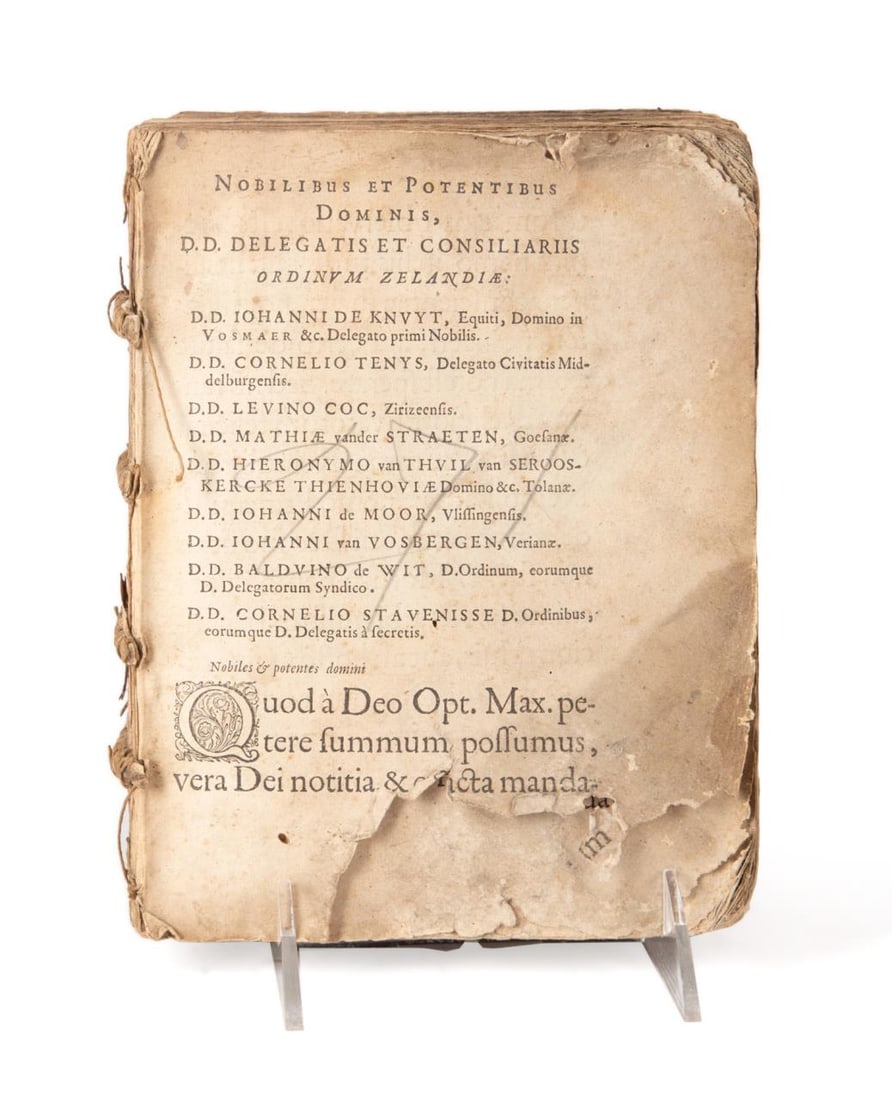 NOBILIBUS ET POTENTIBUS
DOMINIS,
D.D. DELEGATIS ET CONSILIARIIS
ORDINVM ZELANDIÆ:
D.D. IOHANNI DE KNVYT, Equiti, Domino in
VOSMAER &c. Delegato primi Nobilis.
D.D. CORNELIO TENYS, Delegato Civitatis Mid-
delburgenſis.
D.D. LEVINO COC, Zirizeenſis.
D.D. MATHIÆ vander STRAETEN, Goeſanæ.
D.D. HIERONYMO van THVIL van SEROOS-
KERCKE THIENHOVIÆ Domino &c. Tolanæ.
D.D. IOHANNI de MOOR, Vliſſingenſis.
D.D. IOHANNI van VOSBERGEN, Verianæ.
D.D. BALDVINO de WIT, D.Ordinum, eorumque
D. Delegatorum Syndico.
D.D. CORNELIO STAVENISSE D. Ordinibus,
eorumque D. Delegatis à ſecretis.
Nobiles & potentes domini
Quod à Deo Opt. Max. pe-
tere ſummum poſſumus,
vera Dei notitia & manda-